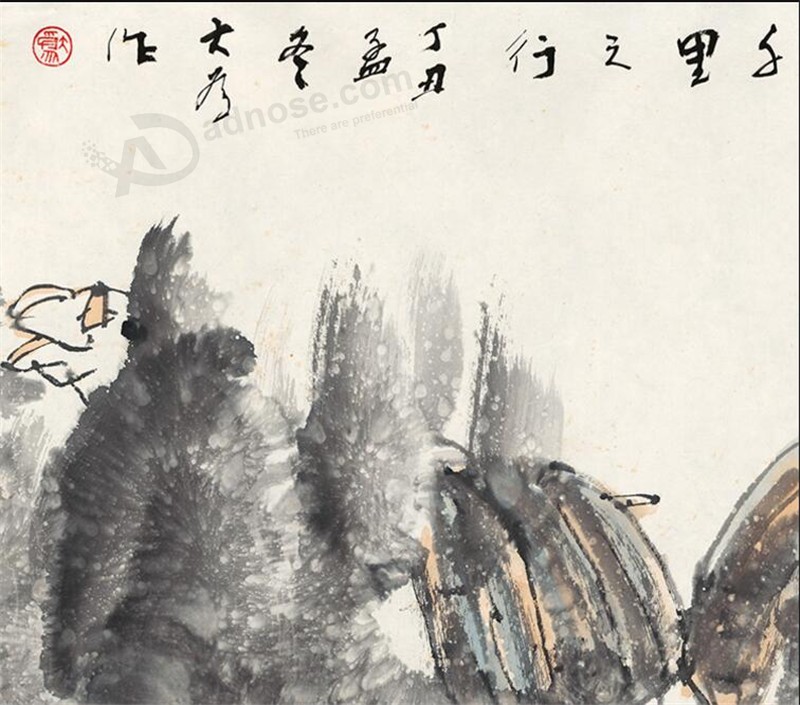 千里之行 丁丑 孟冬 大为 作
adnose.com
There are preferential